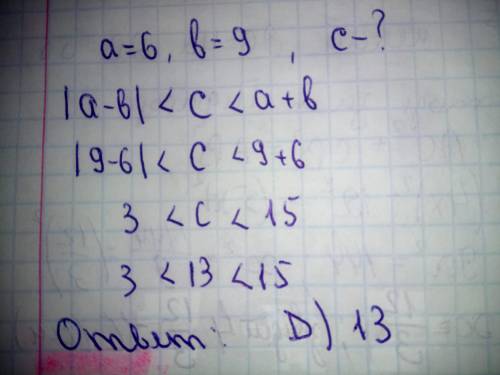 a=6, b=9, c-?
|a-b| < c < a+b
|9-6| < c < 9+6
3 < c < 15
3 < 13 < 15
Ответ: D) 13